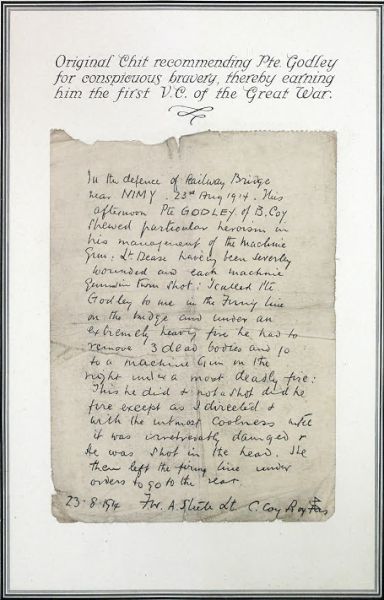 Original Chit recommending Pte. Godley
for conspicuous bravery, thereby earning
him the first V.C. of the Great War.
In the defence of Railway Bridge
near NIMY. 23rd Aug 1914. This
afternoon Pte GODLEY of B. Coy
shewed particular heroism in
his management of the machine
Gun: Lt Dease having been severely
wounded and each machine
Gunner in turn shot: I called Pte
Godley to me in the Firing line
on the bridge and under an
extremely heavy fire he had to
remove 3 dead bodies and go
to a machine Gun on the
right under a most deadly fire:
This he did & not a shot did he
fire except as I directed &
with the utmost coolness until
it was irretrievably damaged &
he was shot in the head. He
then left the firing line under
orders to go to the rear.
23.8.1914 A. Steele Lt C. Coy